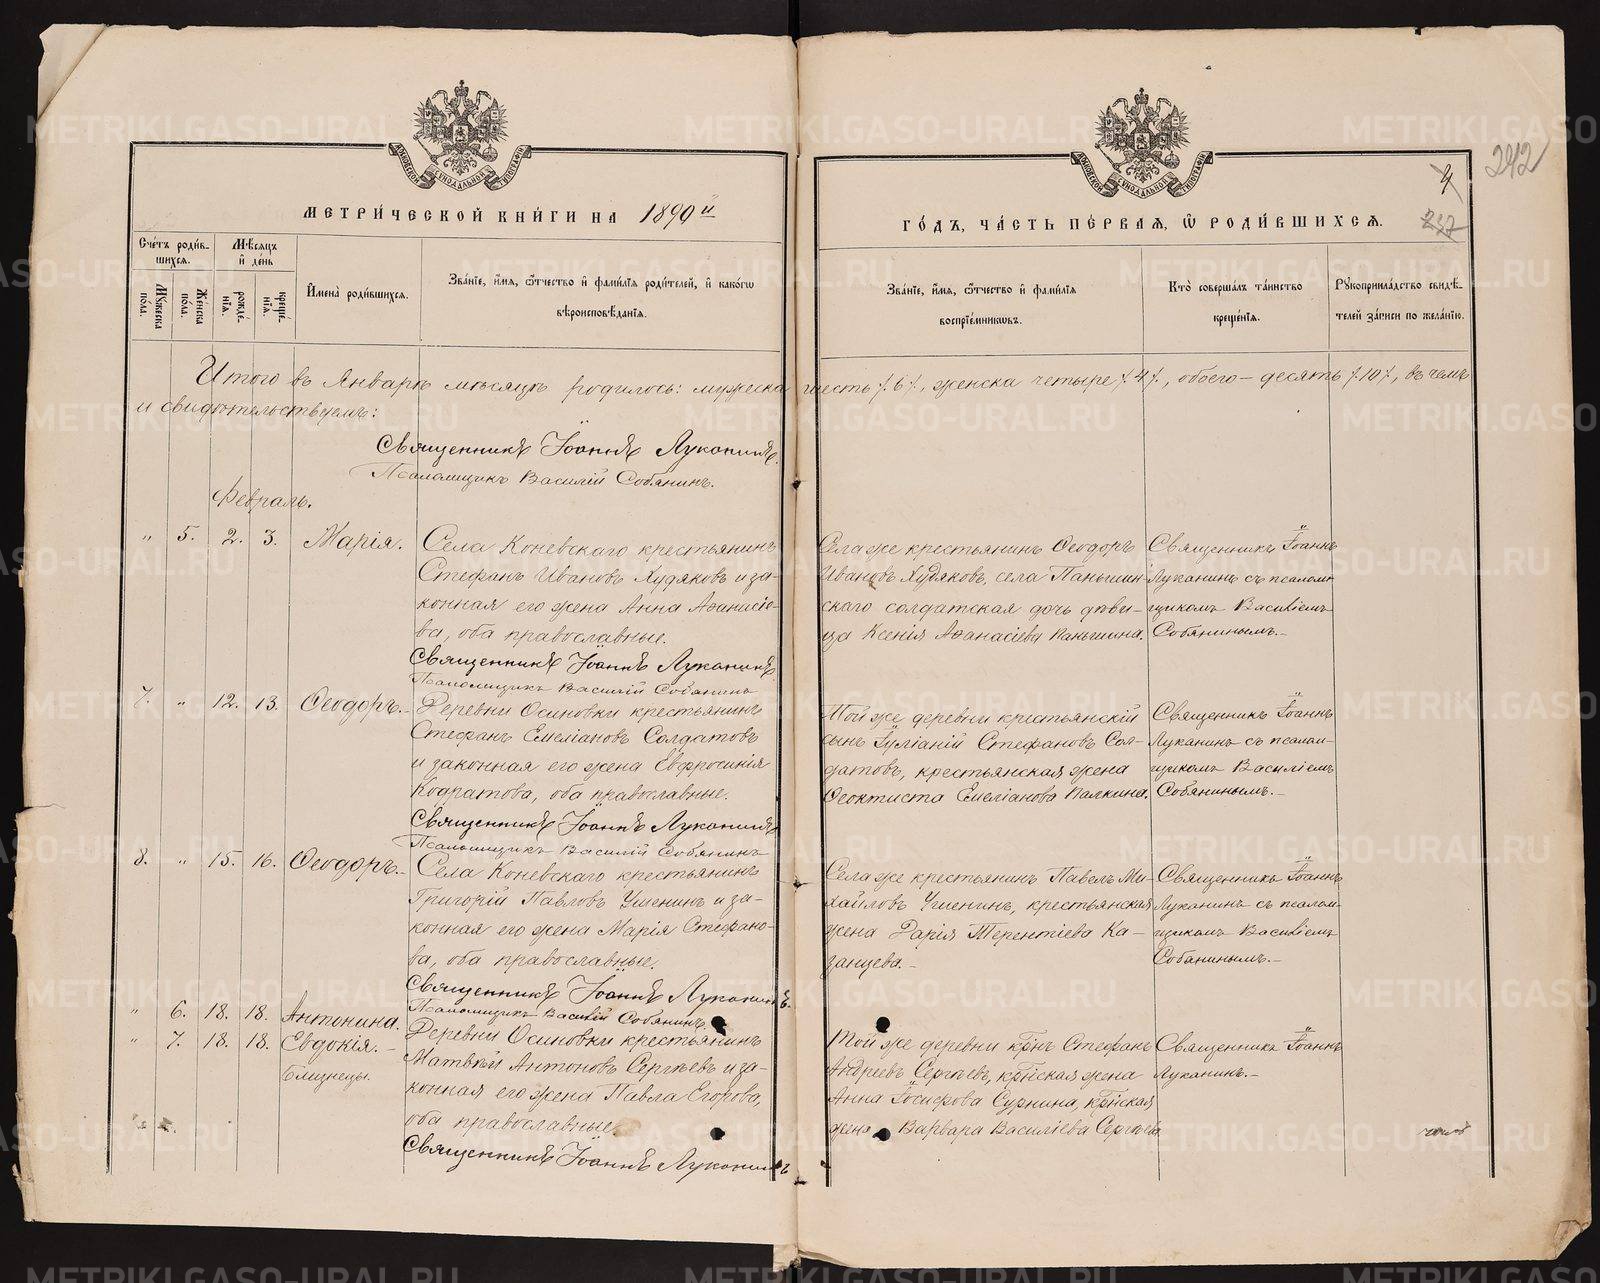 МЕТРИ́ЧЕСКОЙ КНИ́ГИ НА 1899й
ГО́ДЪ, ЧА́СТЬ ПЕ́РВАЯ, Ѡ РОДИ́ВШИХСѦ.
4
242
237
Сче́тъ роди́в-
шихсѧ.
Му́жеска по́ла.
Же́нска по́ла.
Мѣ́сяцъ
и҆ де́нь
рожде́-
нїѧ.
креще́-
нїѧ.
И҆мена̀ роди́вшихсѧ.
Зва́нїе, и҆́мѧ, ѻ҆́тчество и҆ фами́лїѧ роди́телей, и҆ како́гѡ
вѣроисповѣ́данїѧ.
Зва́нїе, и҆́мѧ, ѻ҆́тчество и҆ фами́лїѧ
воспрїе́мникѡвъ.
Кто̀ соверша́лъ та́инство
креще́нїѧ.
Рꙋкоприкла́дство свидѣ́-
телей за́писи по жела́нїю.
Итого въ Январѣ мѣсяцѣ родилось: мужеска шесть /.6/., женска четыре /.4/., обоего – десять /.10/., въ чемъ
и свидѣтельствуемъ:
Священникъ Іоаннъ Луканинъ.
Псаломщикъ Василій Собянинъ.
Февраль.
" 5. 2. 3. Марія.
Села Коневскаго крестьянинъ
Стефанъ Ивановъ Худяковъ и за-
конная его жена Анна Аѳанасіе-
ва, оба православные.
Священникъ Іоаннъ Луканинъ
Псаломщикъ Василій Собянинъ
Села же крестьянинъ Ѳеодоръ
Ивановъ Худяковъ, села Паньшин-
скаго солдатская дочь дѣви-
ца Ксенія Аѳанасіева Паньшина.
Священникъ Іоаннъ
Луканинъ съ псалом-
щикомъ Василіемъ
Собянинымъ.-
7. " 12. 13. Ѳеодоръ.
Деревни Осиновки крестьянинъ
Стефанъ Емеліановъ Солдатовъ
и законная его жена Евфросинія
Кодратова, оба православные.
Священникъ Іоаннъ Луканинъ
Псаломщикъ Василій Собянинъ
Той же деревни крестьянскій
сынъ Іуліаній Стефановъ Сол-
датовъ, крестьянская жена
Ѳеоктиста Емеліанова Палкина.
Священникъ Іоаннъ
Луканинъ съ псалом-
щикомъ Василіемъ
Собянинымъ.-
8. " 15. 16. Ѳеодоръ.-
Села Коневскаго крестьянинъ
Григорій Павловъ Ушенинъ и за-
конная его жена Марія Стефано-
ва, оба православные.
Священникъ Іоаннъ Луканинъ.
Псаломщикъ Василій Собянинъ.
Села же крестьянинъ Павелъ Ми-
хайловъ Ушенинъ, крестьянская
жена Дарія Терентіева Ка-
занцева.-
Священникъ Іоаннъ
Луканинъ съ псалом-
щикомъ Василіемъ
Собянинымъ.-
" 6. 18. 18. Антонина.
" 7. 18. 18. Евдокія.-
Близнецы.
Деревни Осиновки крестьянинъ
Матвѣй Антоновъ Сергѣевъ и за-
конная его жена Павла Егорова,
оба православные.
Священникъ Іоаннъ Луканинъ
Той же деревни крнъ Стефанъ
Андреевъ Сергѣевъ, крнская жена
Анна Іосифова Сурнина, крнская
жена Варвара Василіева Сергѣева
Священникъ Іоаннъ
Луканинъ.-
METRIKI.GASO-URAL.RU